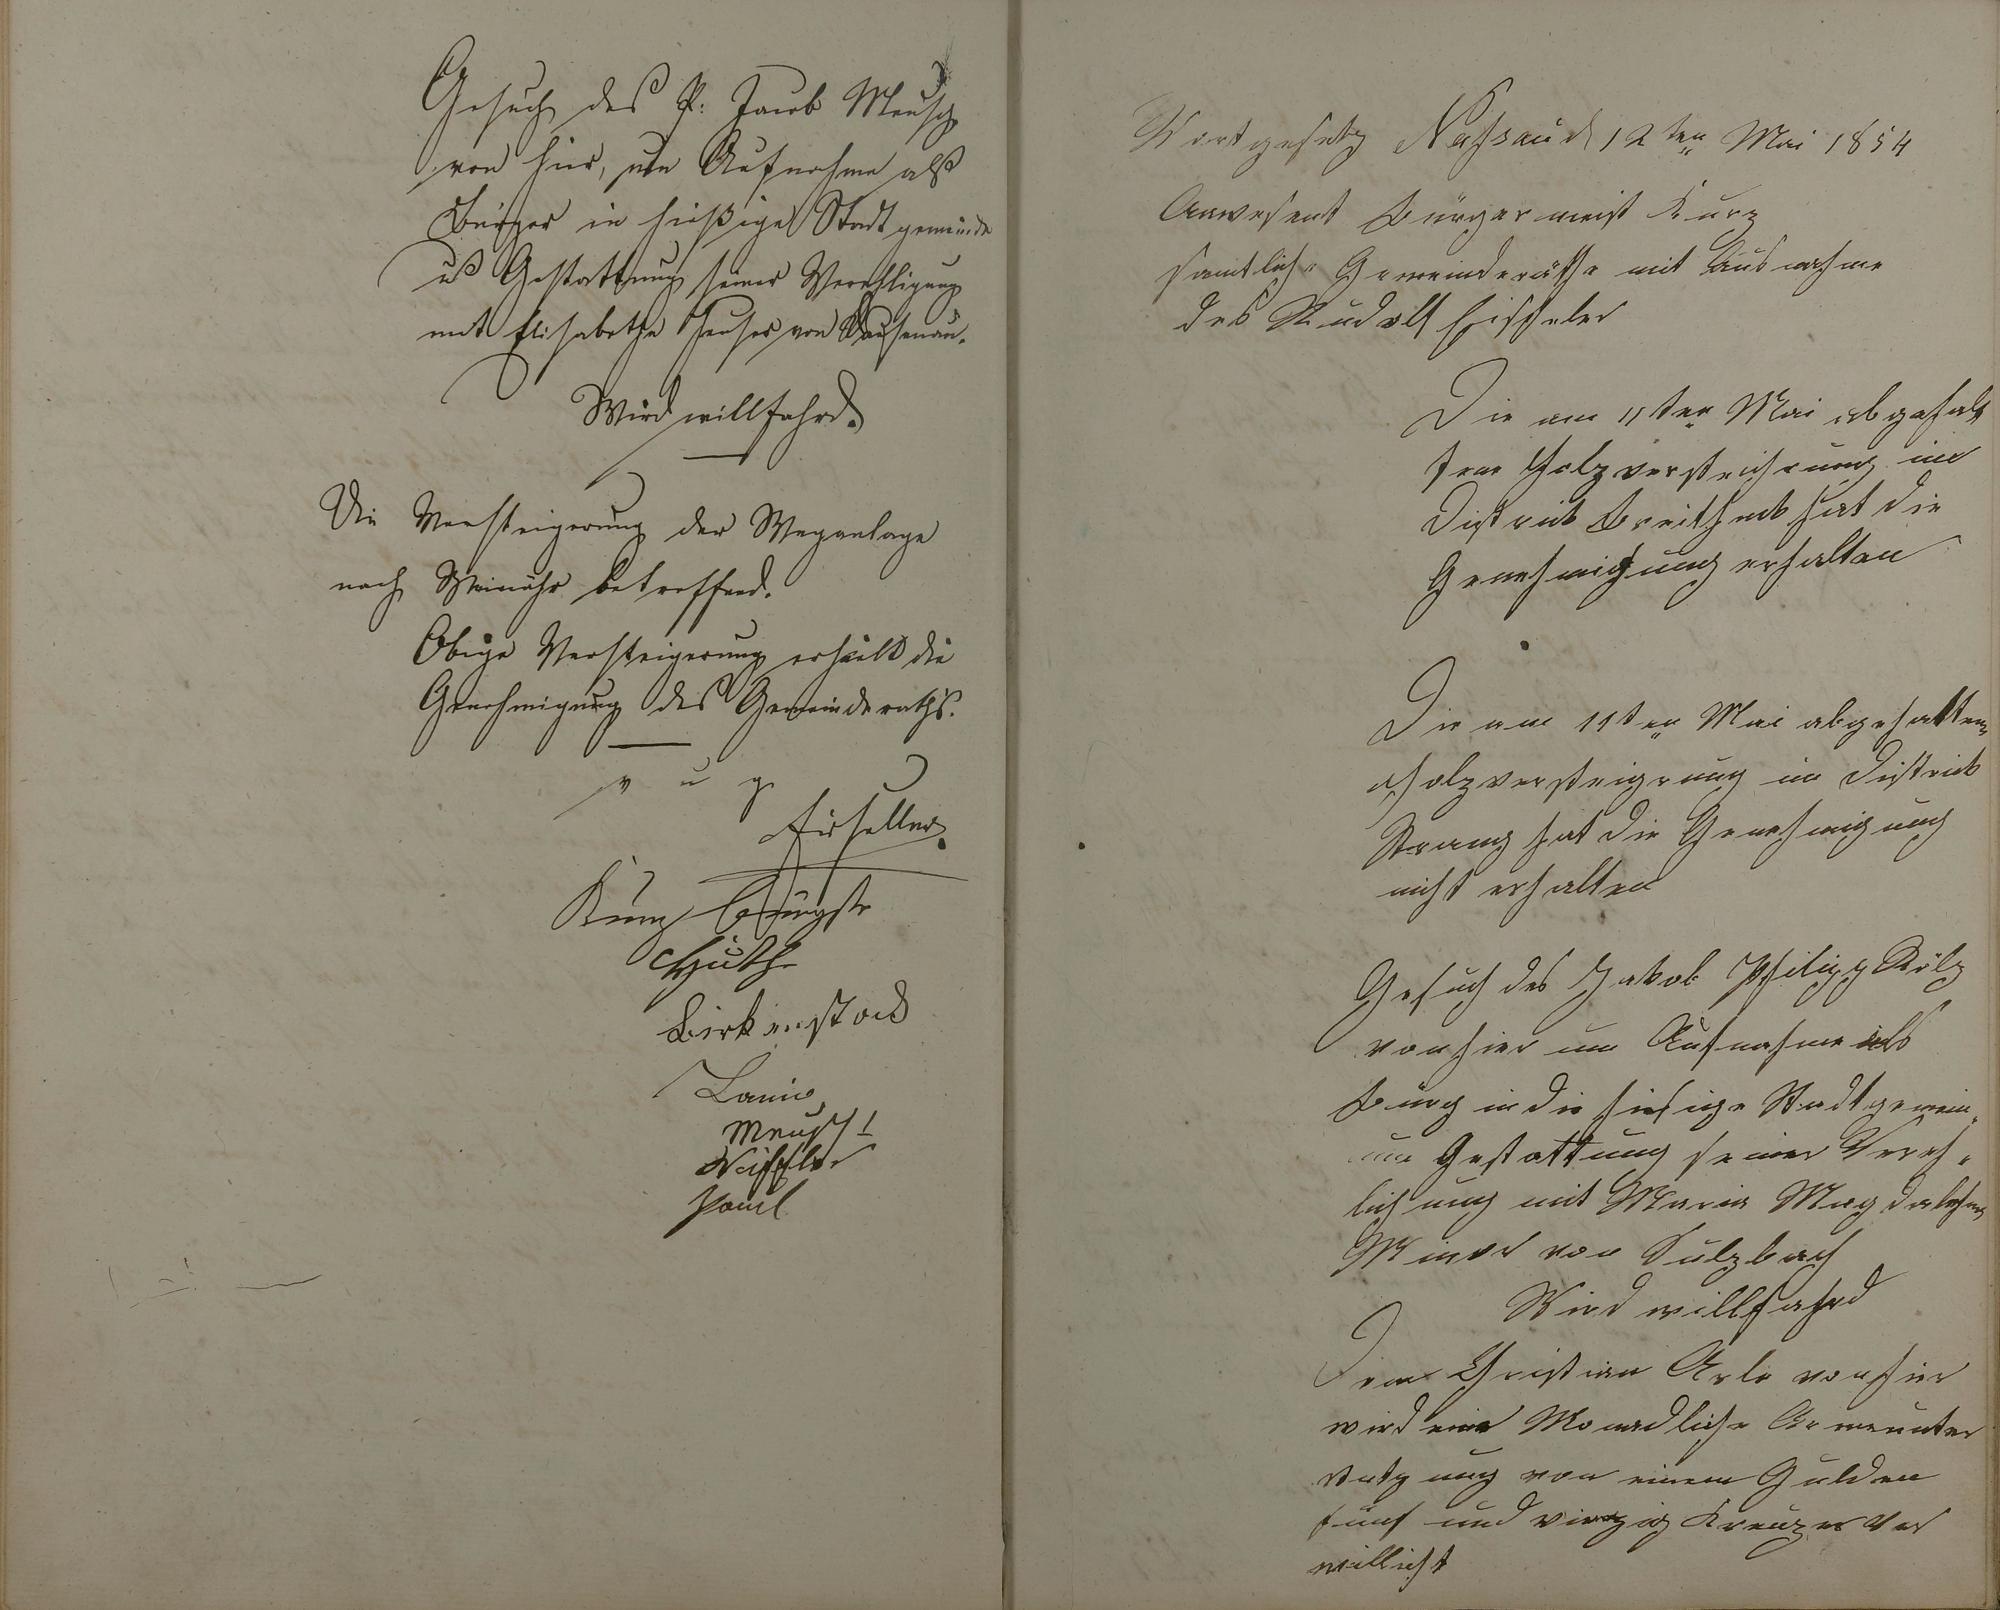 Gesuch des P. Jacob Meusch
von hier, um Aufnahme als
Bürger in hießige Stadtgemeinde
u Gestattung seiner Verehligung
mit Elisabetha Heuser von Dausenau.
Wird willfahrd.
Die Versteigerung der Weganlage
nach Weinähr betreffend.
Obige Versteigerung erhielt die
Genehmigung des Gemeinderaths.
v u g
Kurz
Huth
Birkenstock
Meusch I
Paul
Nassau d 12ten Mai 1854
Anwesent Bürgermeist Kurz
samtliche Gemeinderäthe mit Ausnahme
des Rudolf
Die am 11ten Mai abgehal
tene Holzversteichrung im
District hat die
Genehmigung erhalten
Die am 11ten Mai abgehalten
Holzversteigrung im District
Strang hat die Genehmigung
nicht erhalten
Gesuch des Jakob Philipp
von hier um Aufnahme als
Bürg in die hiesige Stadtgemein
um Gestattung seiner Vereh
lichung mit Maria Magdalehna
von Sulzbach
Wird willfahrd
Dem Christian von hier
wird eine Monadliche Armenunter
stutzung von einem Gulden
fünf und vierzig Kreuzer ver
willicht